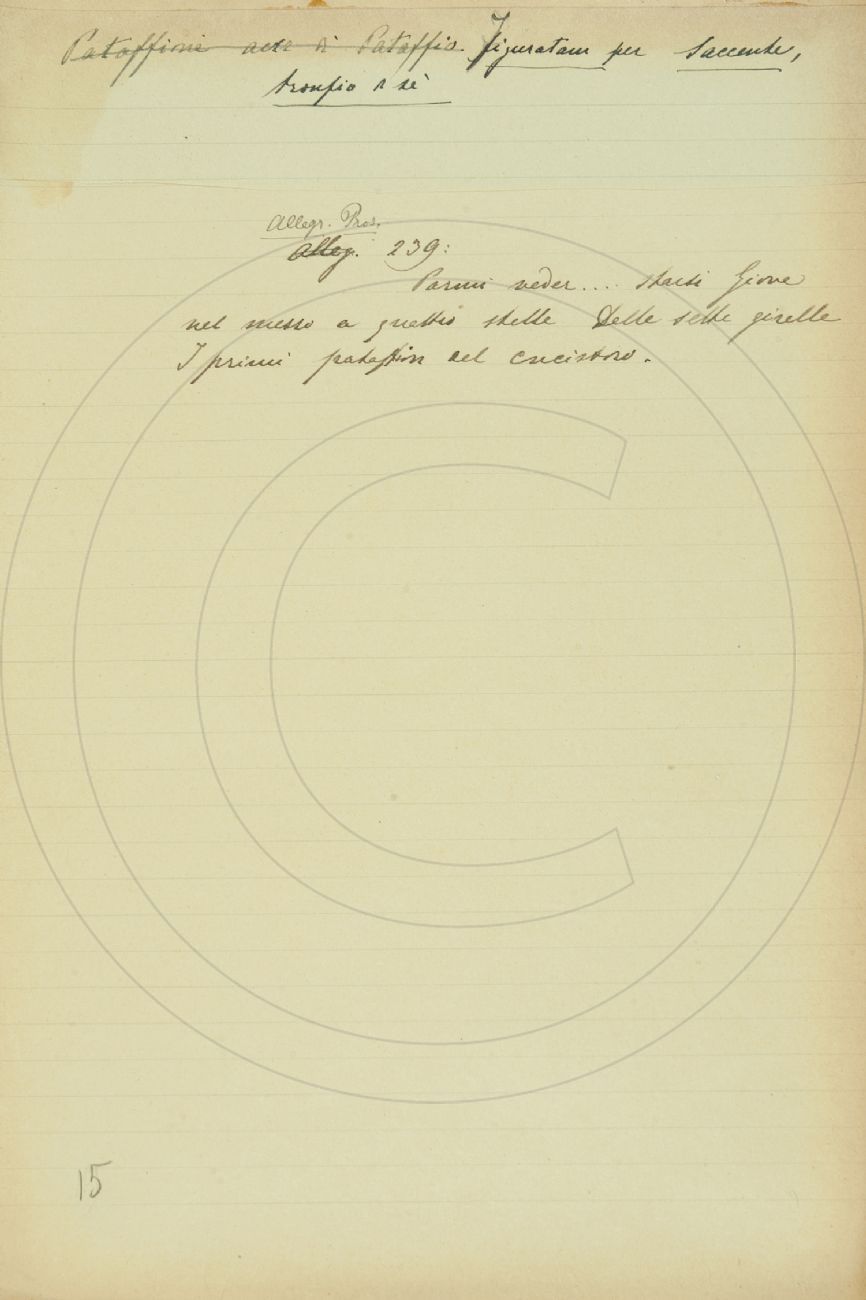 Pataffione acr. di Pataffio. Figuratam per Saccente,
tronfio di sè
Allegr. Pros.
Alleg. 239:
Parmi veder.... starsi Giove
nel mezzo a quattro stelle Delle sette girelle
I primi pataffion del concistoro.
15